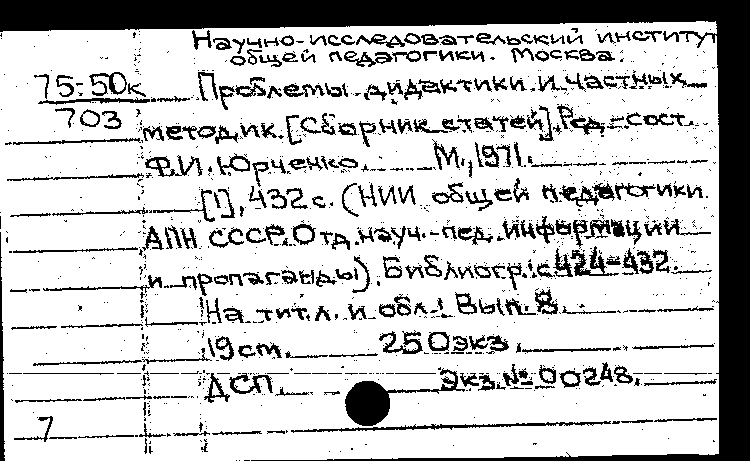 Научно-исследовательский институт
общей педагогики. Москва.
75-50к Проблемы дидактики и частных
703
методик. [Сборник статей]. Ред.-сост.
Ф.И. Юрченко. М., 1971.
[1], 432 с. (НИИ общей педагогики
АПН СССР. Отд. науч.-пед. информации
и пропаганды). Библиогр.: с. 424-432.
На тит. л. и обл.: Вып. 8.
19 см. 250 экз.
ДСП. Экз. № 00248.
7